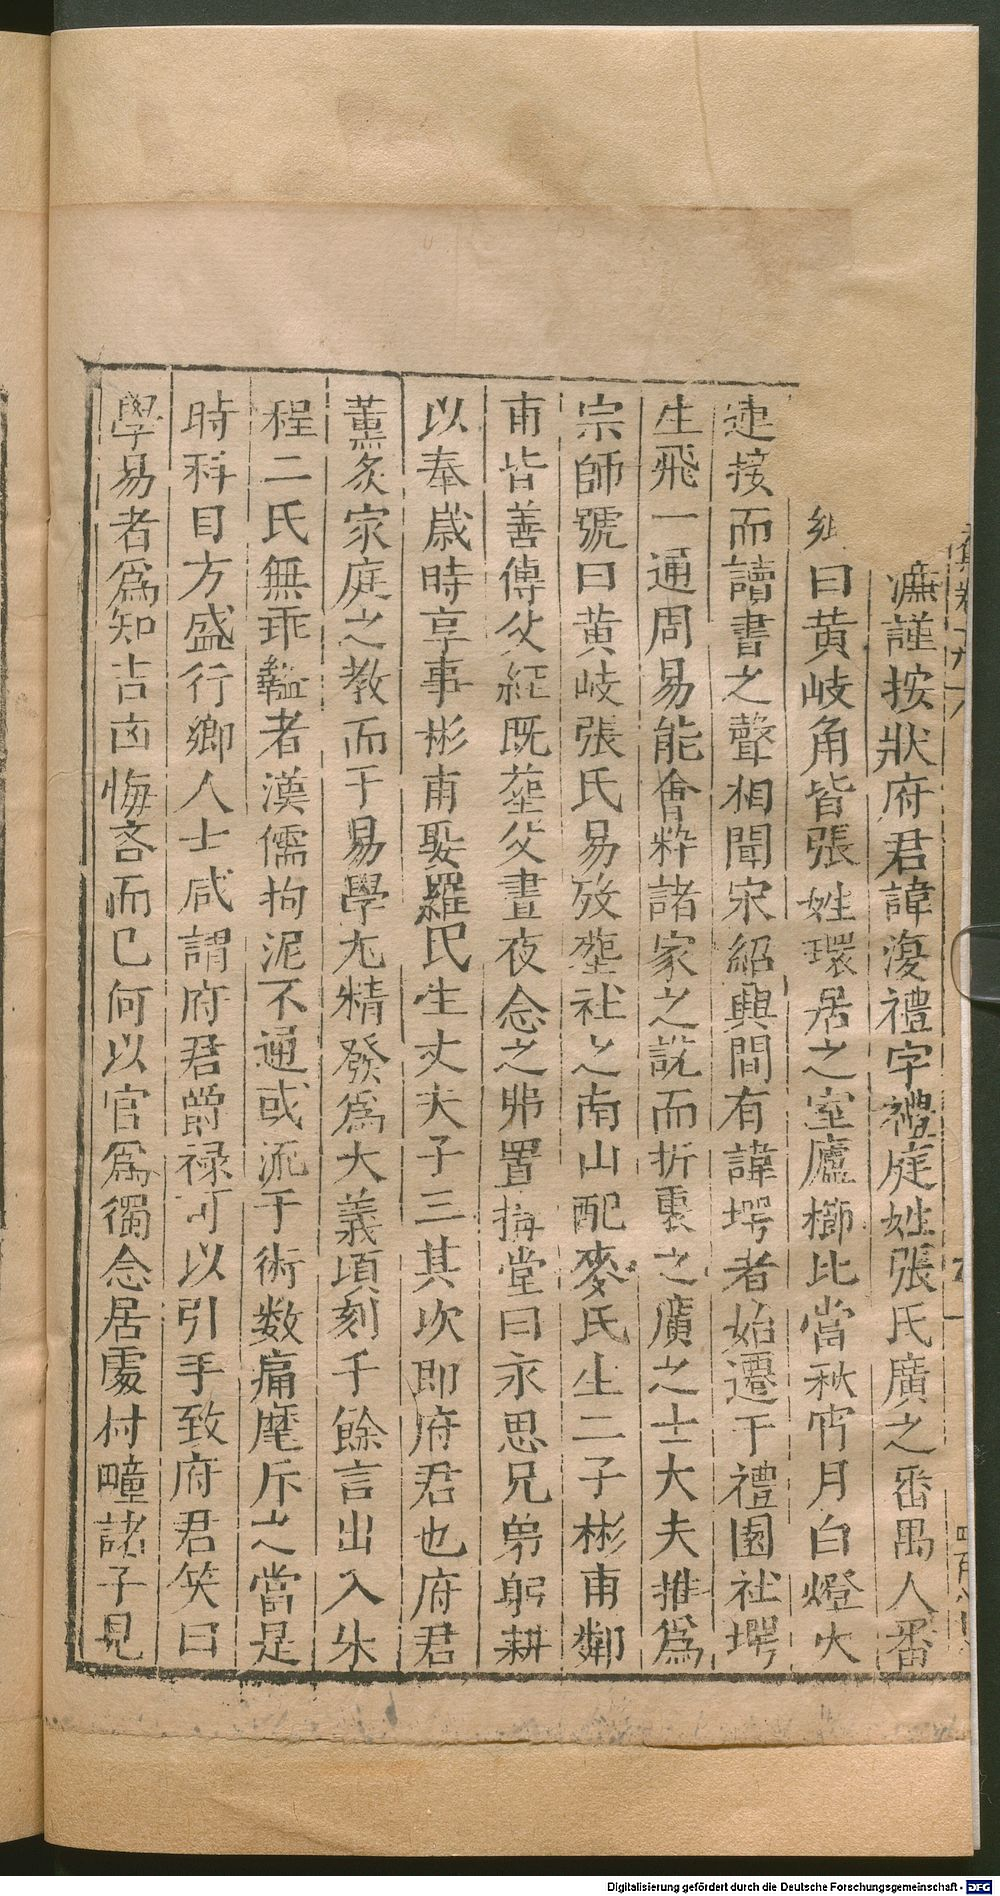 廡謹按狀府君諱復禮字禮庭姓張氏廣之番禺人番
曰黄岐角皆張姓環居之室廬櫛比當秋宵月白燈火
連接而讀書之聲相聞宋紹興間有諱堮者始遷于禮園社堮
生飛一通周易能會粹諸家之說而折衷之廣之士大夫推為
宗師號曰黄岐張氏易歿塟社之南山配麥氏生二子彬甫鄰
甫皆善傳父經既塟父晝夜念之弗置搆堂曰永思兄弟躬耕
以奉歲時享事彬甫娶羅氏生丈夫子三其次即府君也府君
薰炙家庭之教而于易學尤精發為大義頃刻千餘言出入朱
程二氏無乖盭者漢儒拘泥不通或流于術数痛麾斥之當是
時科目方盛行鄉人士咸謂府君爵禄可以引手致府君笑曰
學易者為知吉凶悔吝而已何以官為獨念居處村疃諸子見
Digitalisierung gefördert durch die Deutsche Forschungsgemeinschaft - DFG